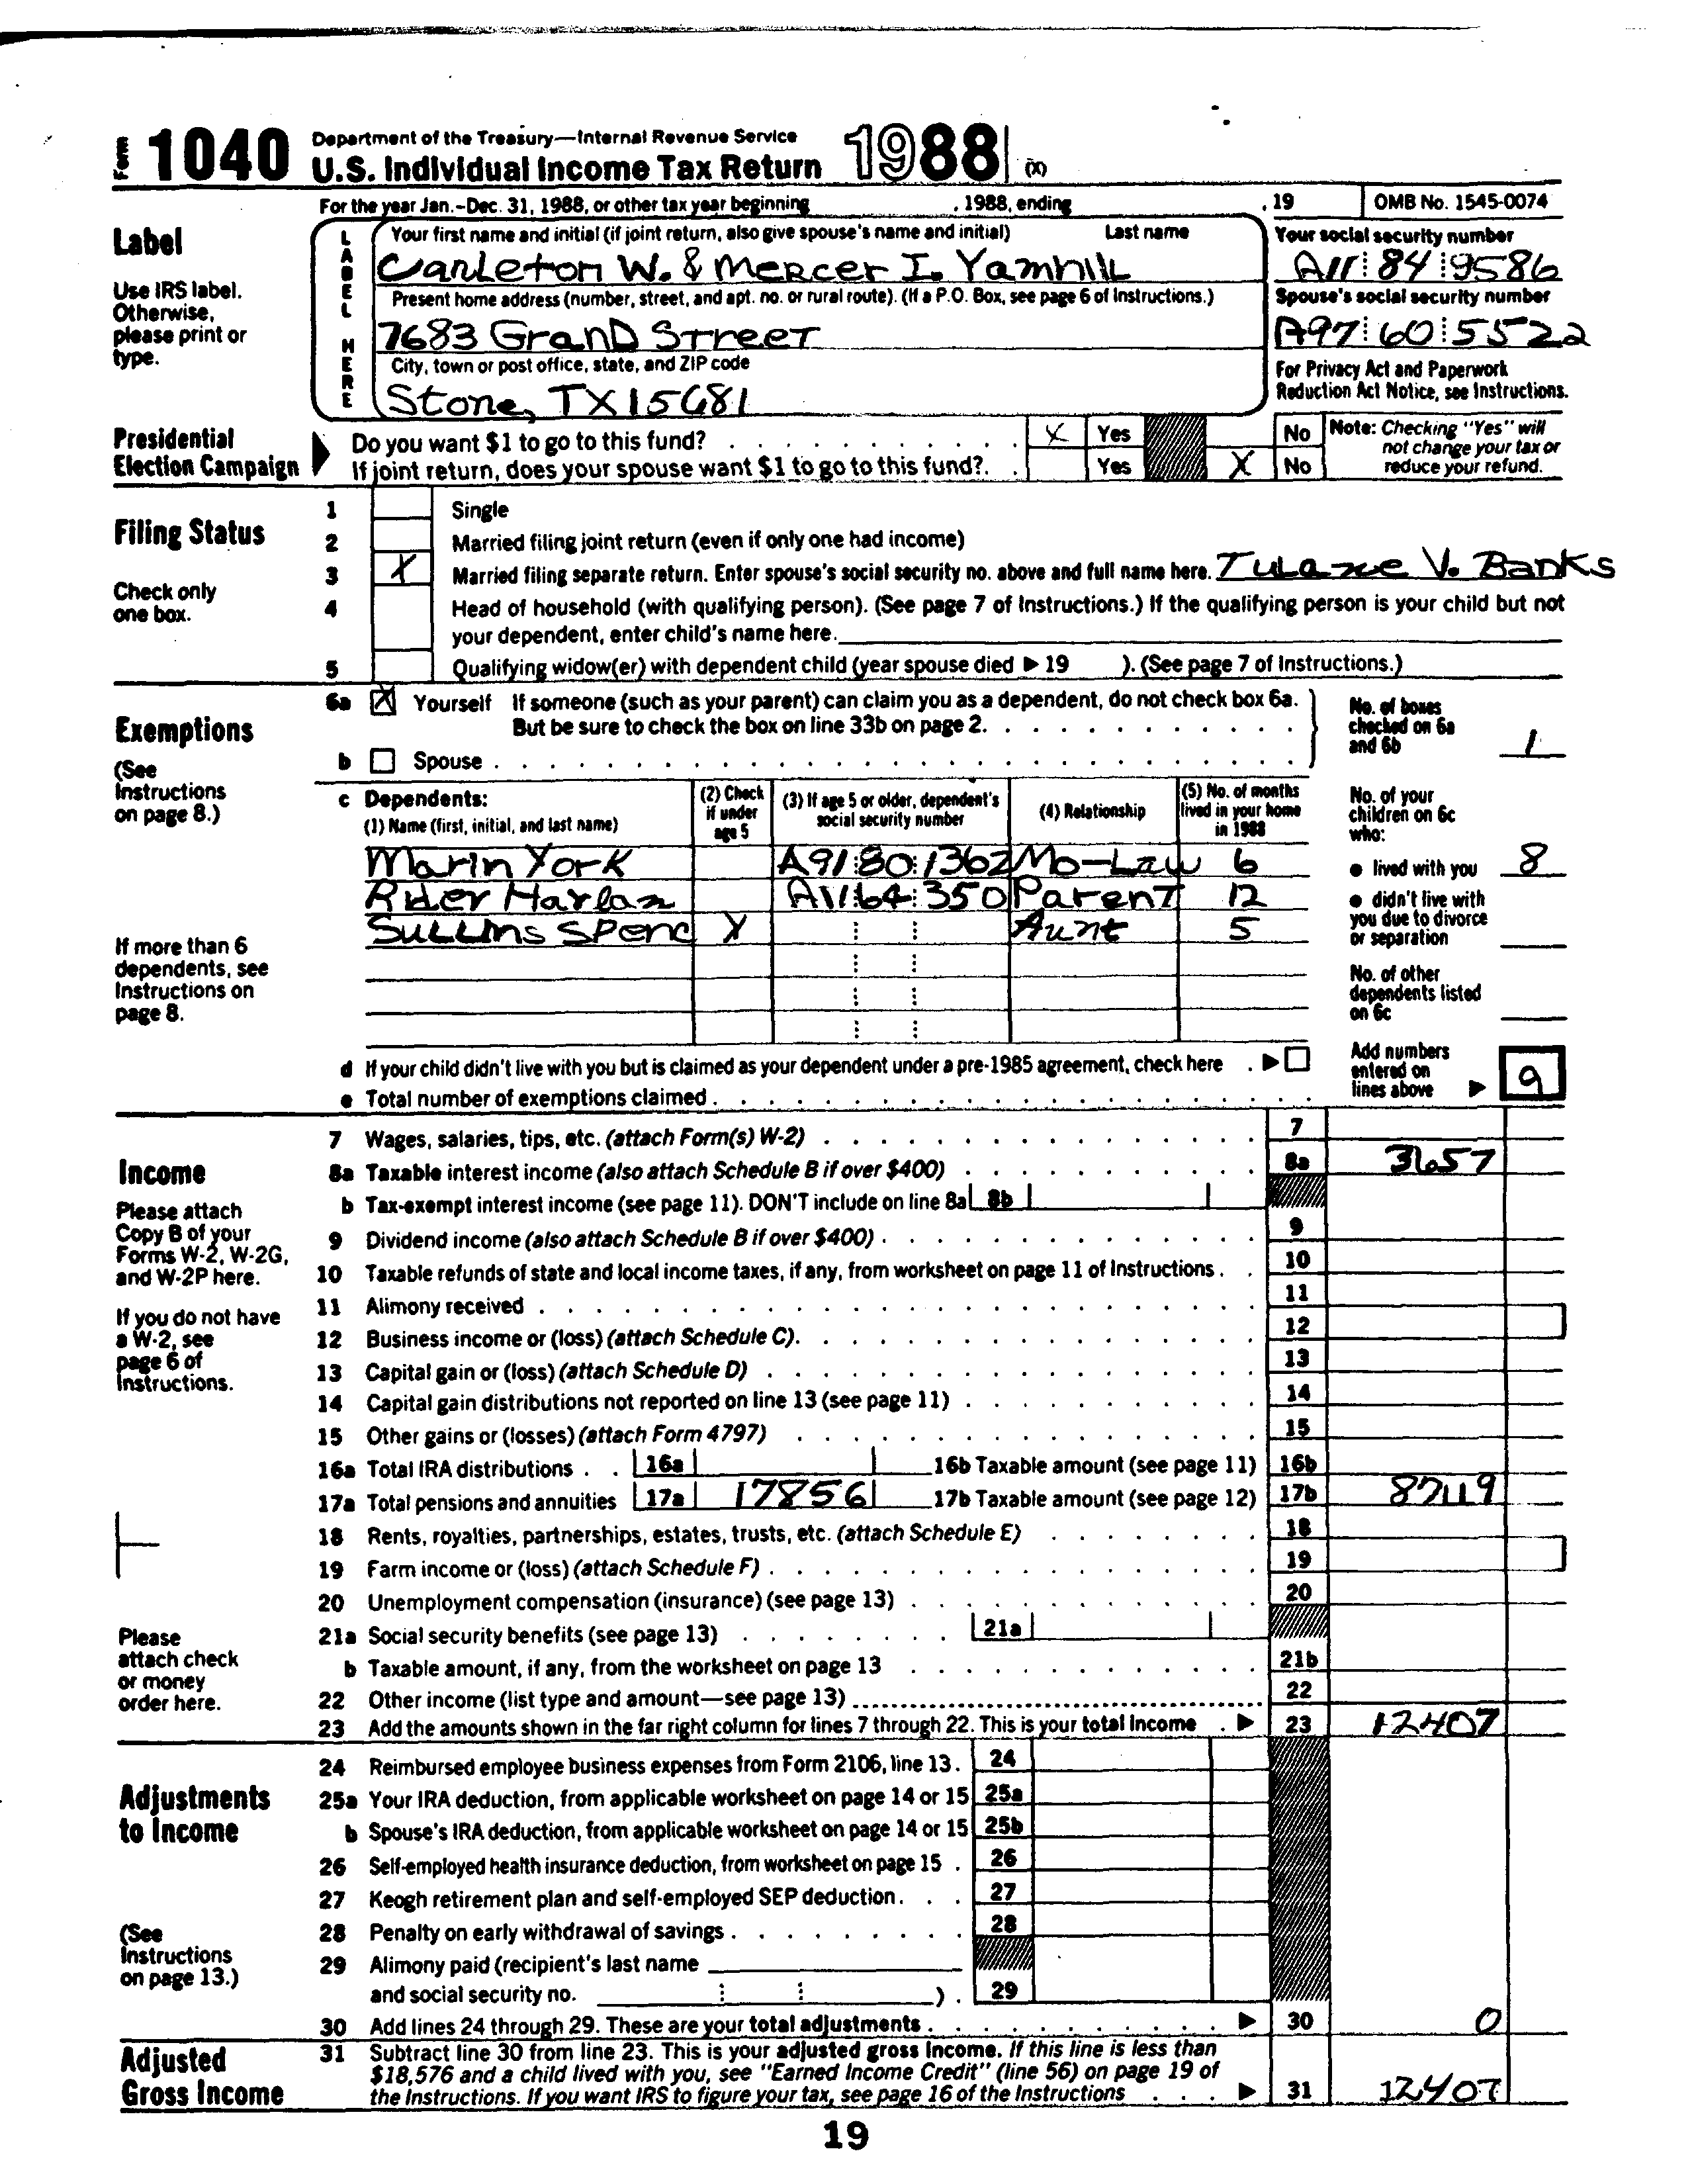 Form 1040 Department of the Treasury—Internal Revenue Service
U.S. Individual Income Tax Return 1988 (X)
For the year Jan.-Dec. 31, 1988, or other tax year beginning , 1988, ending , 19 OMB No. 1545-0074
Label
Use IRS label. Otherwise, please print or type.
LABEL HERE
Your first name and initial (if joint return, also give spouse's name and initial) Last name
Carleton W. & Mercer I. Yamhill
Your social security number
A11 84 9586
Present home address (number, street, and apt. no. or rural route). (If a P.O. Box, see page 6 of Instructions.)
7683 Grand Street
Spouse's social security number
A97 60 5522
City, town or post office, state, and ZIP code
Stone, TX 15681
For Privacy Act and Paperwork Reduction Act Notice, see Instructions.
Presidential Election Campaign
Do you want $1 to go to this fund? X Yes No
If joint return, does your spouse want $1 to go to this fund? Yes X No
Note: Checking "Yes" will not change your tax or reduce your refund.
Filing Status
Check only one box.
1 Single
2 Married filing joint return (even if only one had income)
3 X Married filing separate return. Enter spouse's social security no. above and full name here. Tulane V. Banks
4 Head of household (with qualifying person). (See page 7 of Instructions.) If the qualifying person is your child but not
your dependent, enter child's name here.
5 Qualifying widow(er) with dependent child (year spouse died ▶ 19 ). (See page 7 of Instructions.)
Exemptions
(See Instructions on page 8.)
6a X Yourself If someone (such as your parent) can claim you as a dependent, do not check box 6a.
But be sure to check the box on line 33b on page 2.
b Spouse
No. of boxes checked on 6a and 6b 1
c Dependents:
(1) Name (first, initial, and last name) (2) Check if under age 5 (3) If age 5 or older, dependent's social security number (4) Relationship (5) No. of months lived in your home in 1988
Marin York A91 80 1362 Mo-Law 6
Rider Harlan A11 64 350 Parent 12
Sullins Spenc X Aunt 5
If more than 6 dependents, see Instructions on page 8.
No. of your children on 6c who:
● lived with you 8
● didn't live with you due to divorce or separation
No. of other dependents listed on 6c
d If your child didn't live with you but is claimed as your dependent under a pre-1985 agreement, check here ▶
e Total number of exemptions claimed
Add numbers entered on lines above ▶ 9
Income
Please attach Copy B of your Forms W-2, W-2G, and W-2P here.
If you do not have a W-2, see page 6 of Instructions.
Please attach check or money order here.
7 Wages, salaries, tips, etc. (attach Form(s) W-2) 7
8a Taxable interest income (also attach Schedule B if over $400) 8a 3657
b Tax-exempt interest income (see page 11). DON'T include on line 8a 8b
9 Dividend income (also attach Schedule B if over $400) 9
10 Taxable refunds of state and local income taxes, if any, from worksheet on page 11 of Instructions 10
11 Alimony received 11
12 Business income or (loss) (attach Schedule C) 12
13 Capital gain or (loss) (attach Schedule D) 13
14 Capital gain distributions not reported on line 13 (see page 11) 14
15 Other gains or (losses) (attach Form 4797) 15
16a Total IRA distributions 16a 16b Taxable amount (see page 11) 16b
17a Total pensions and annuities 17a 17856 17b Taxable amount (see page 12) 17b
18 Rents, royalties, partnerships, estates, trusts, etc. (attach Schedule E) 18
19 Farm income or (loss) (attach Schedule F) 19
20 Unemployment compensation (insurance) (see page 13) 20
21a Social security benefits (see page 13) 21a
b Taxable amount, if any, from the worksheet on page 13 21b
22 Other income (list type and amount—see page 13) 22
23 Add the amounts shown in the far right column for lines 7 through 22. This is your total income ▶ 23 12407
Adjustments to Income
(See Instructions on page 13.)
24 Reimbursed employee business expenses from Form 2106, line 13. 24
25a Your IRA deduction, from applicable worksheet on page 14 or 15 25a
b Spouse's IRA deduction, from applicable worksheet on page 14 or 15 25b
26 Self-employed health insurance deduction, from worksheet on page 15 26
27 Keogh retirement plan and self-employed SEP deduction 27
28 Penalty on early withdrawal of savings 28
29 Alimony paid (recipient's last name
and social security no. ) 29
30 Add lines 24 through 29. These are your total adjustments ▶ 30 0
Adjusted Gross Income
31 Subtract line 30 from line 23. This is your adjusted gross income. If this line is less than
$18,576 and a child lived with you, see "Earned Income Credit" (line 56) on page 19 of
the Instructions. If you want IRS to figure your tax, see page 16 of the Instructions ▶ 31 12407
19